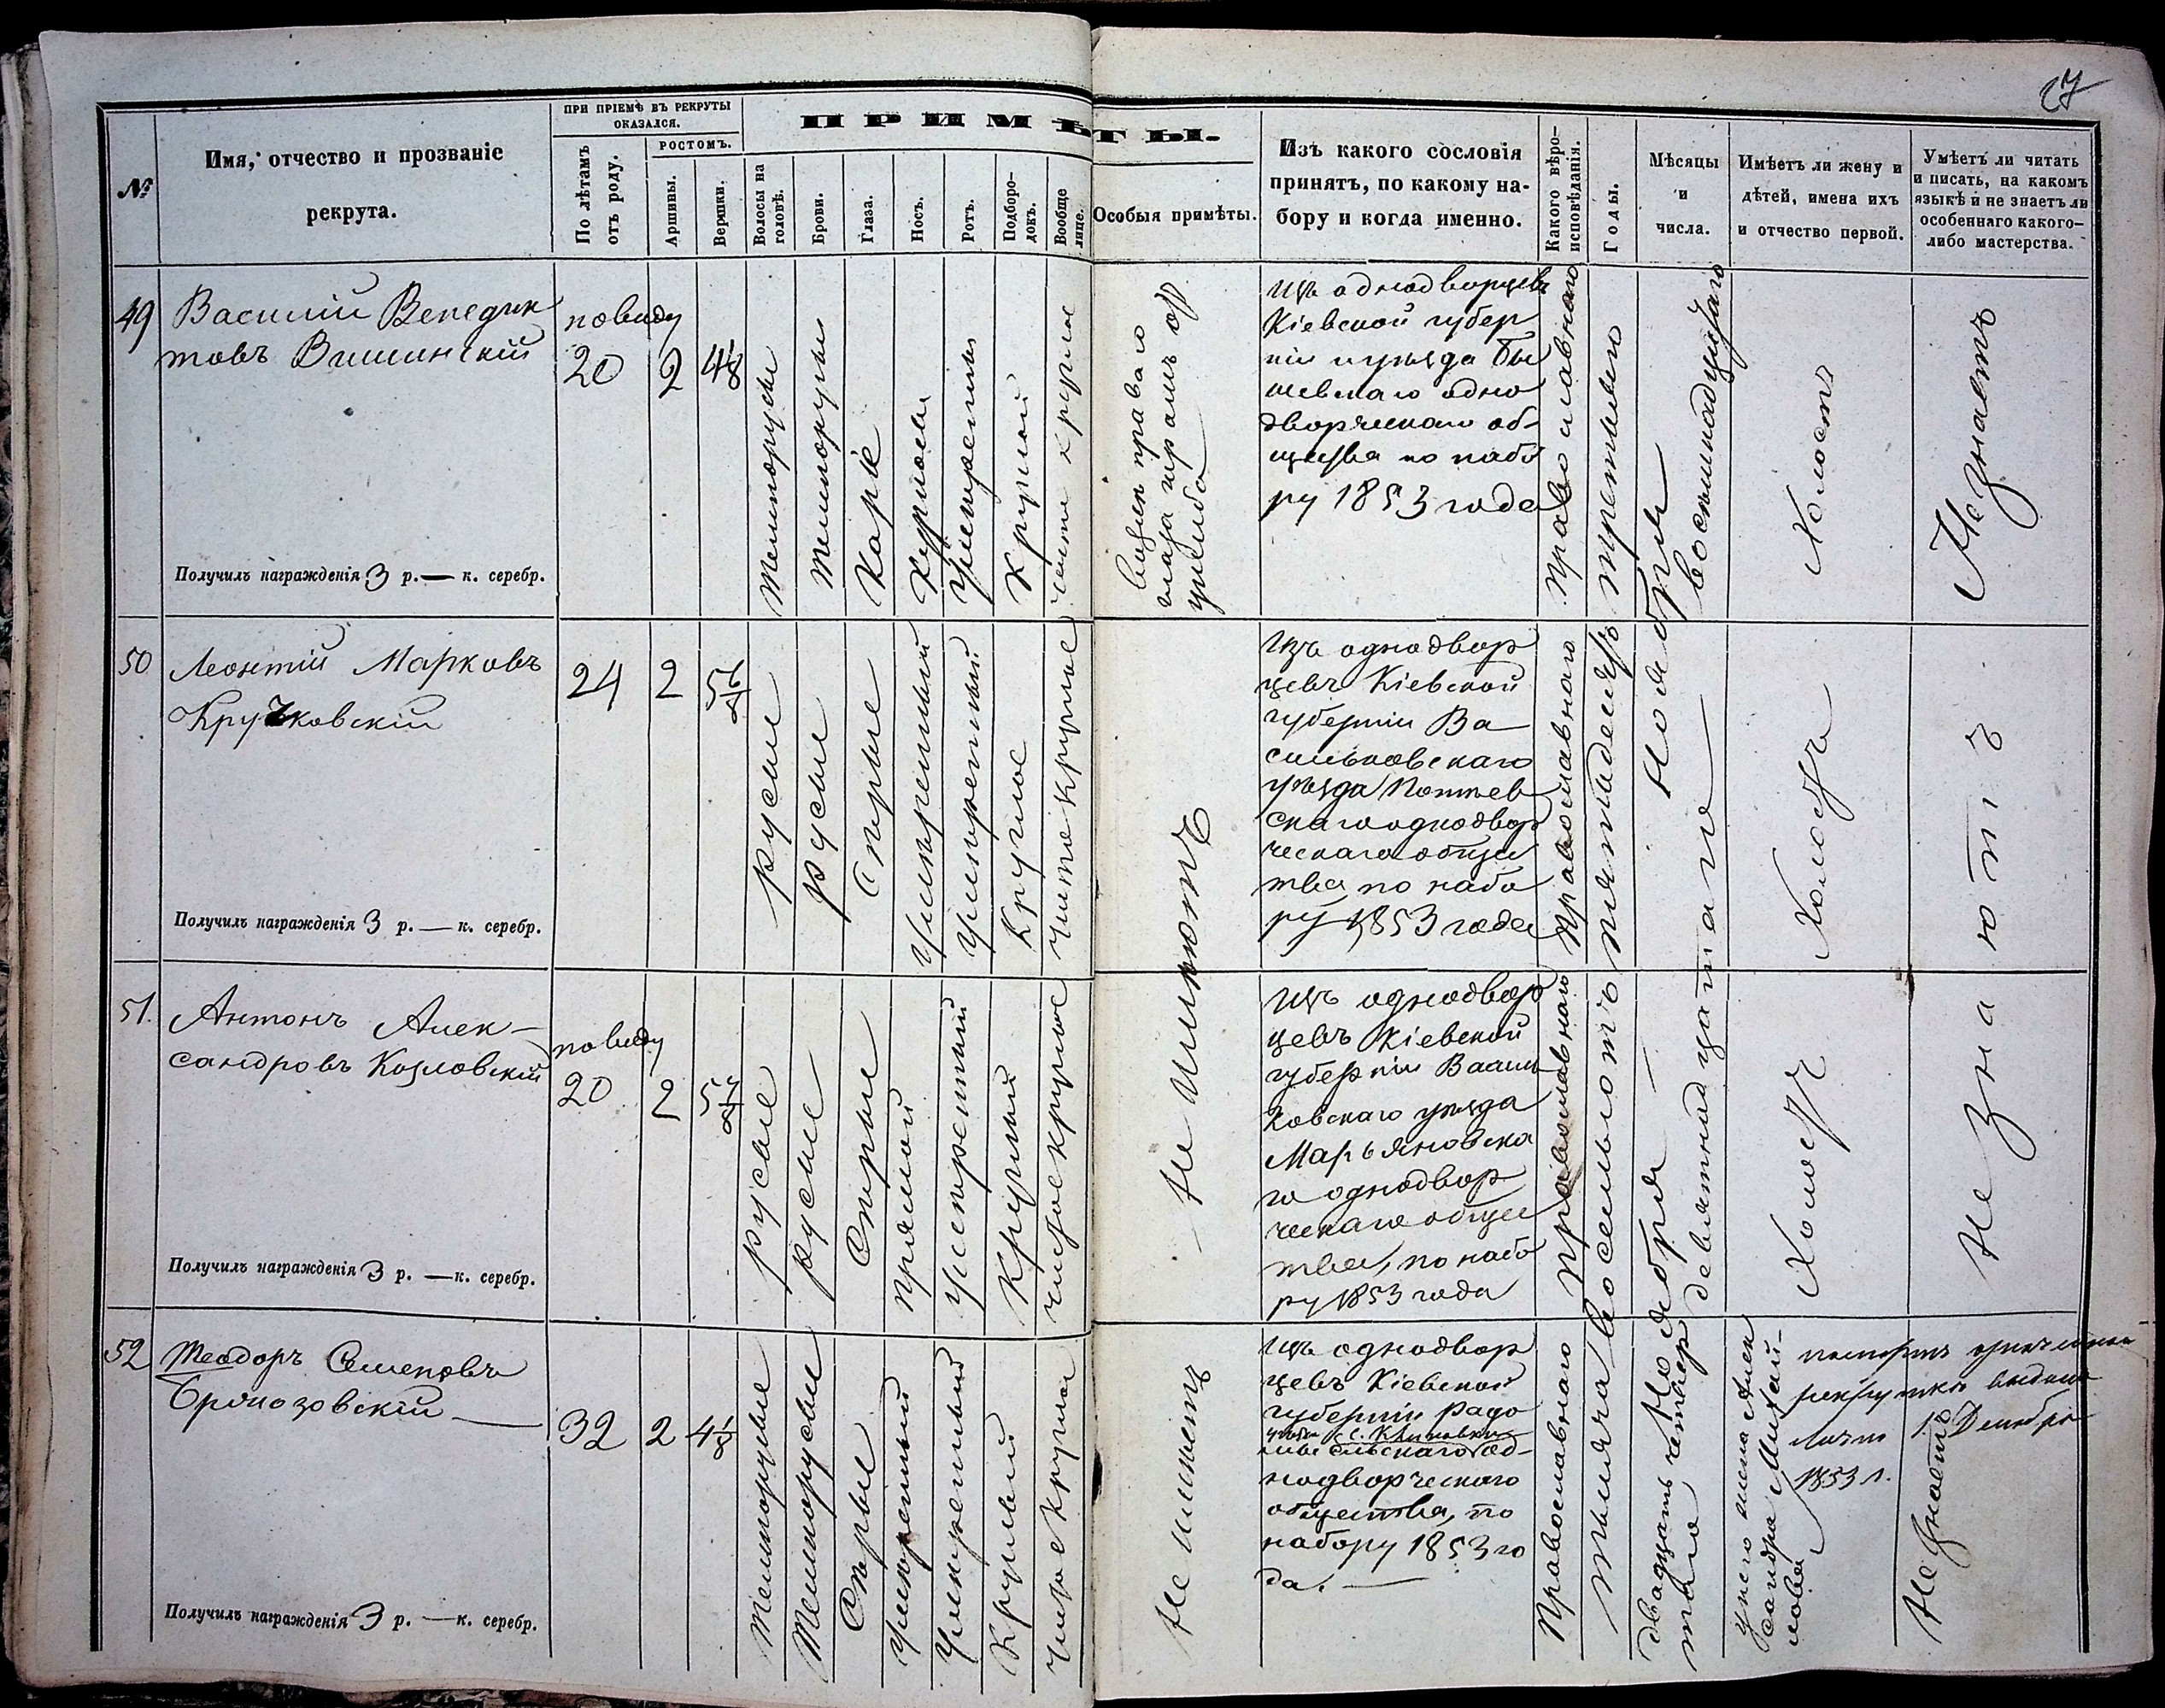 27
№
Имя, отчество и прозваніе
рекрута.
ПРИ ПРІЕМѢ ВЪ РЕКРУТЫ
ОКАЗАЛСЯ.
По лѣтамъ
отъ роду.
РОСТОМЪ.
Аршины.
Вершки.
ПРИМѢТЫ.
Волосы на
головѣ.
Брови.
Глаза.
Носъ.
Ротъ.
Подборо-
докъ.
Вообще
лице.
Особыя примѣты.
Изъ какого сословія
принятъ, по какому на-
бору и когда именно.
Какого вѣро-
исповѣданія.
Годы.
Мѣсяцы
и
числа.
Имѣетъ ли жену и
дѣтей, имена ихъ
и отчество первой.
Умѣетъ ли читать
и писать, на какомъ
языкѣ и не знаетъ ли
особеннаго какого-
либо мастерства.
49
Василій Венедик
товъ Вишинскій
Получилъ награжденія 3 р. — к. серебр.
по виду
20
2
4 1/8
темнорусые
темнорусые
Каріе
Умѣренный
Круглой
чистое круглое
возлѣ праваго
глаза шрамъ отъ
ушиба
Изъ однодворцевъ
Кіевской губер
ніи и уѣзда Бы
шевскаго одно
дворческаго об-
щества по набо
ру 1853 года
Православнаго
третьяго
Ноября
восемнадцатаго
Холостъ
Не знаетъ
50
Леонтій Марковъ
Кручковскій
Получилъ награжденія 3 р. — к. серебр.
24
2
5 6/8
русые
русые
Сѣрые
Умѣренный
Умѣренный
Круглое
Чистое круглое
Не имѣютъ
Изъ однодвор
цевъ Кіевской
губерніи Ва
сильковскаго
уѣзда
скаго однодвор
ческаго общес
тва по набо
ру 1853 года
Православнаго
Холостъ
Не знаютъ
51.
Антонъ Алек-
сандровъ Козловскій
Получилъ награжденія 3 р. — к. серебр.
по виду
20
2
русые
русые
Сѣрые
прямой
Умѣренный
Круглый
чистое круглое
Изъ однодвор
цевъ Кіевской
губерніи Василь
ковскаго уѣзда
Марьяновска
го однодвор
ческаго общес
тва, по набо
ру 1853 года
Православнаго
Ноября
девятнадцатаго
Холостъ
52
Теодоръ Семеновъ
Бржозовскій —
Получилъ награжденія 3 р. — к. серебр.
32
2
4 1/8
Темнорусые
Темнорусые
Сѣрые
Умѣренный
Умѣренный
Круглый
Чистое круглое
Не имѣетъ
Изъ однодвор
цевъ Кіевской
губерніи Радо
мысльскаго од-
нодворческаго
общества, по
набору 1853 го
да. —
Православнаго
тысяча восемьсотъ пятьдесятъ
Ноября
двадцать четвер
таго
У него жена Алек
сандра Михай-
лова
1 Декабря
1853 г.
Не знаетъ